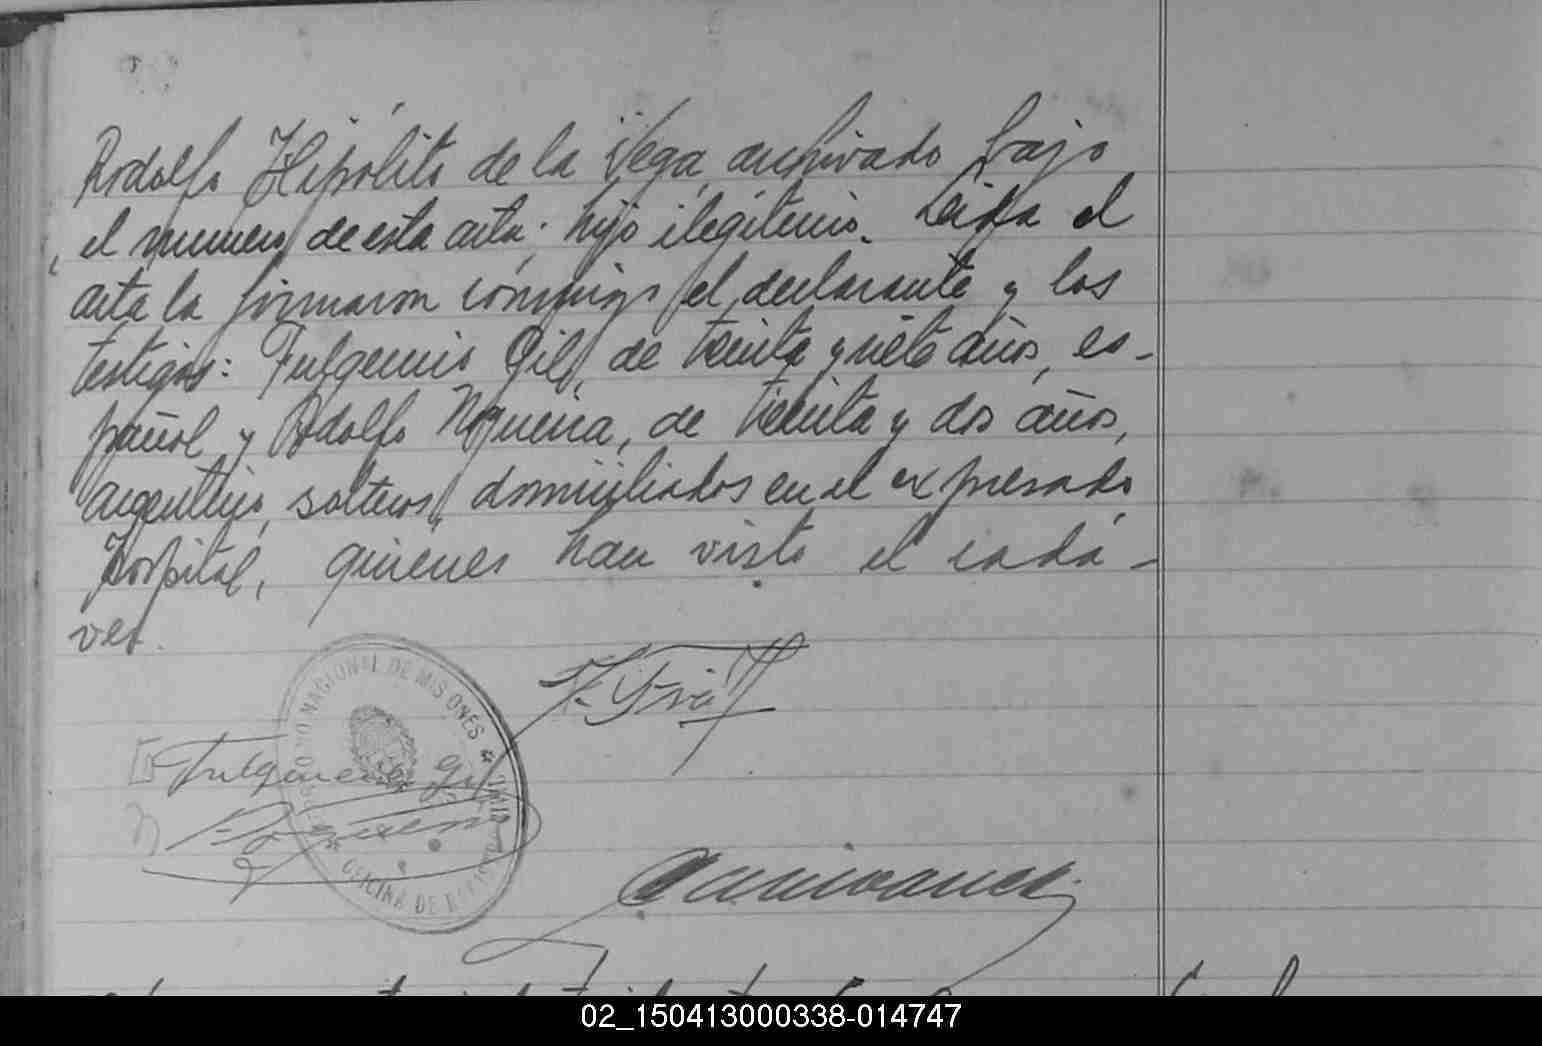 Rodolfo Hipólito de la Vega, archivado bajo
el numero de esta acta; hijo ilegitimo. Leida el
acta la firmaron conmigo el declarante y los
testigos: Fulgencio Gil, de treinta y siete años, es-
pañol y Adolfo Noguera, de treinta y dos años,
argentino, solteros, domiciliados en el expresado
Hospital, quienes han visto el cadá-
ver.
NACIONAL DE MISIONES
Fulgencio Gil
OFICINA DE
02_150413000338-014747